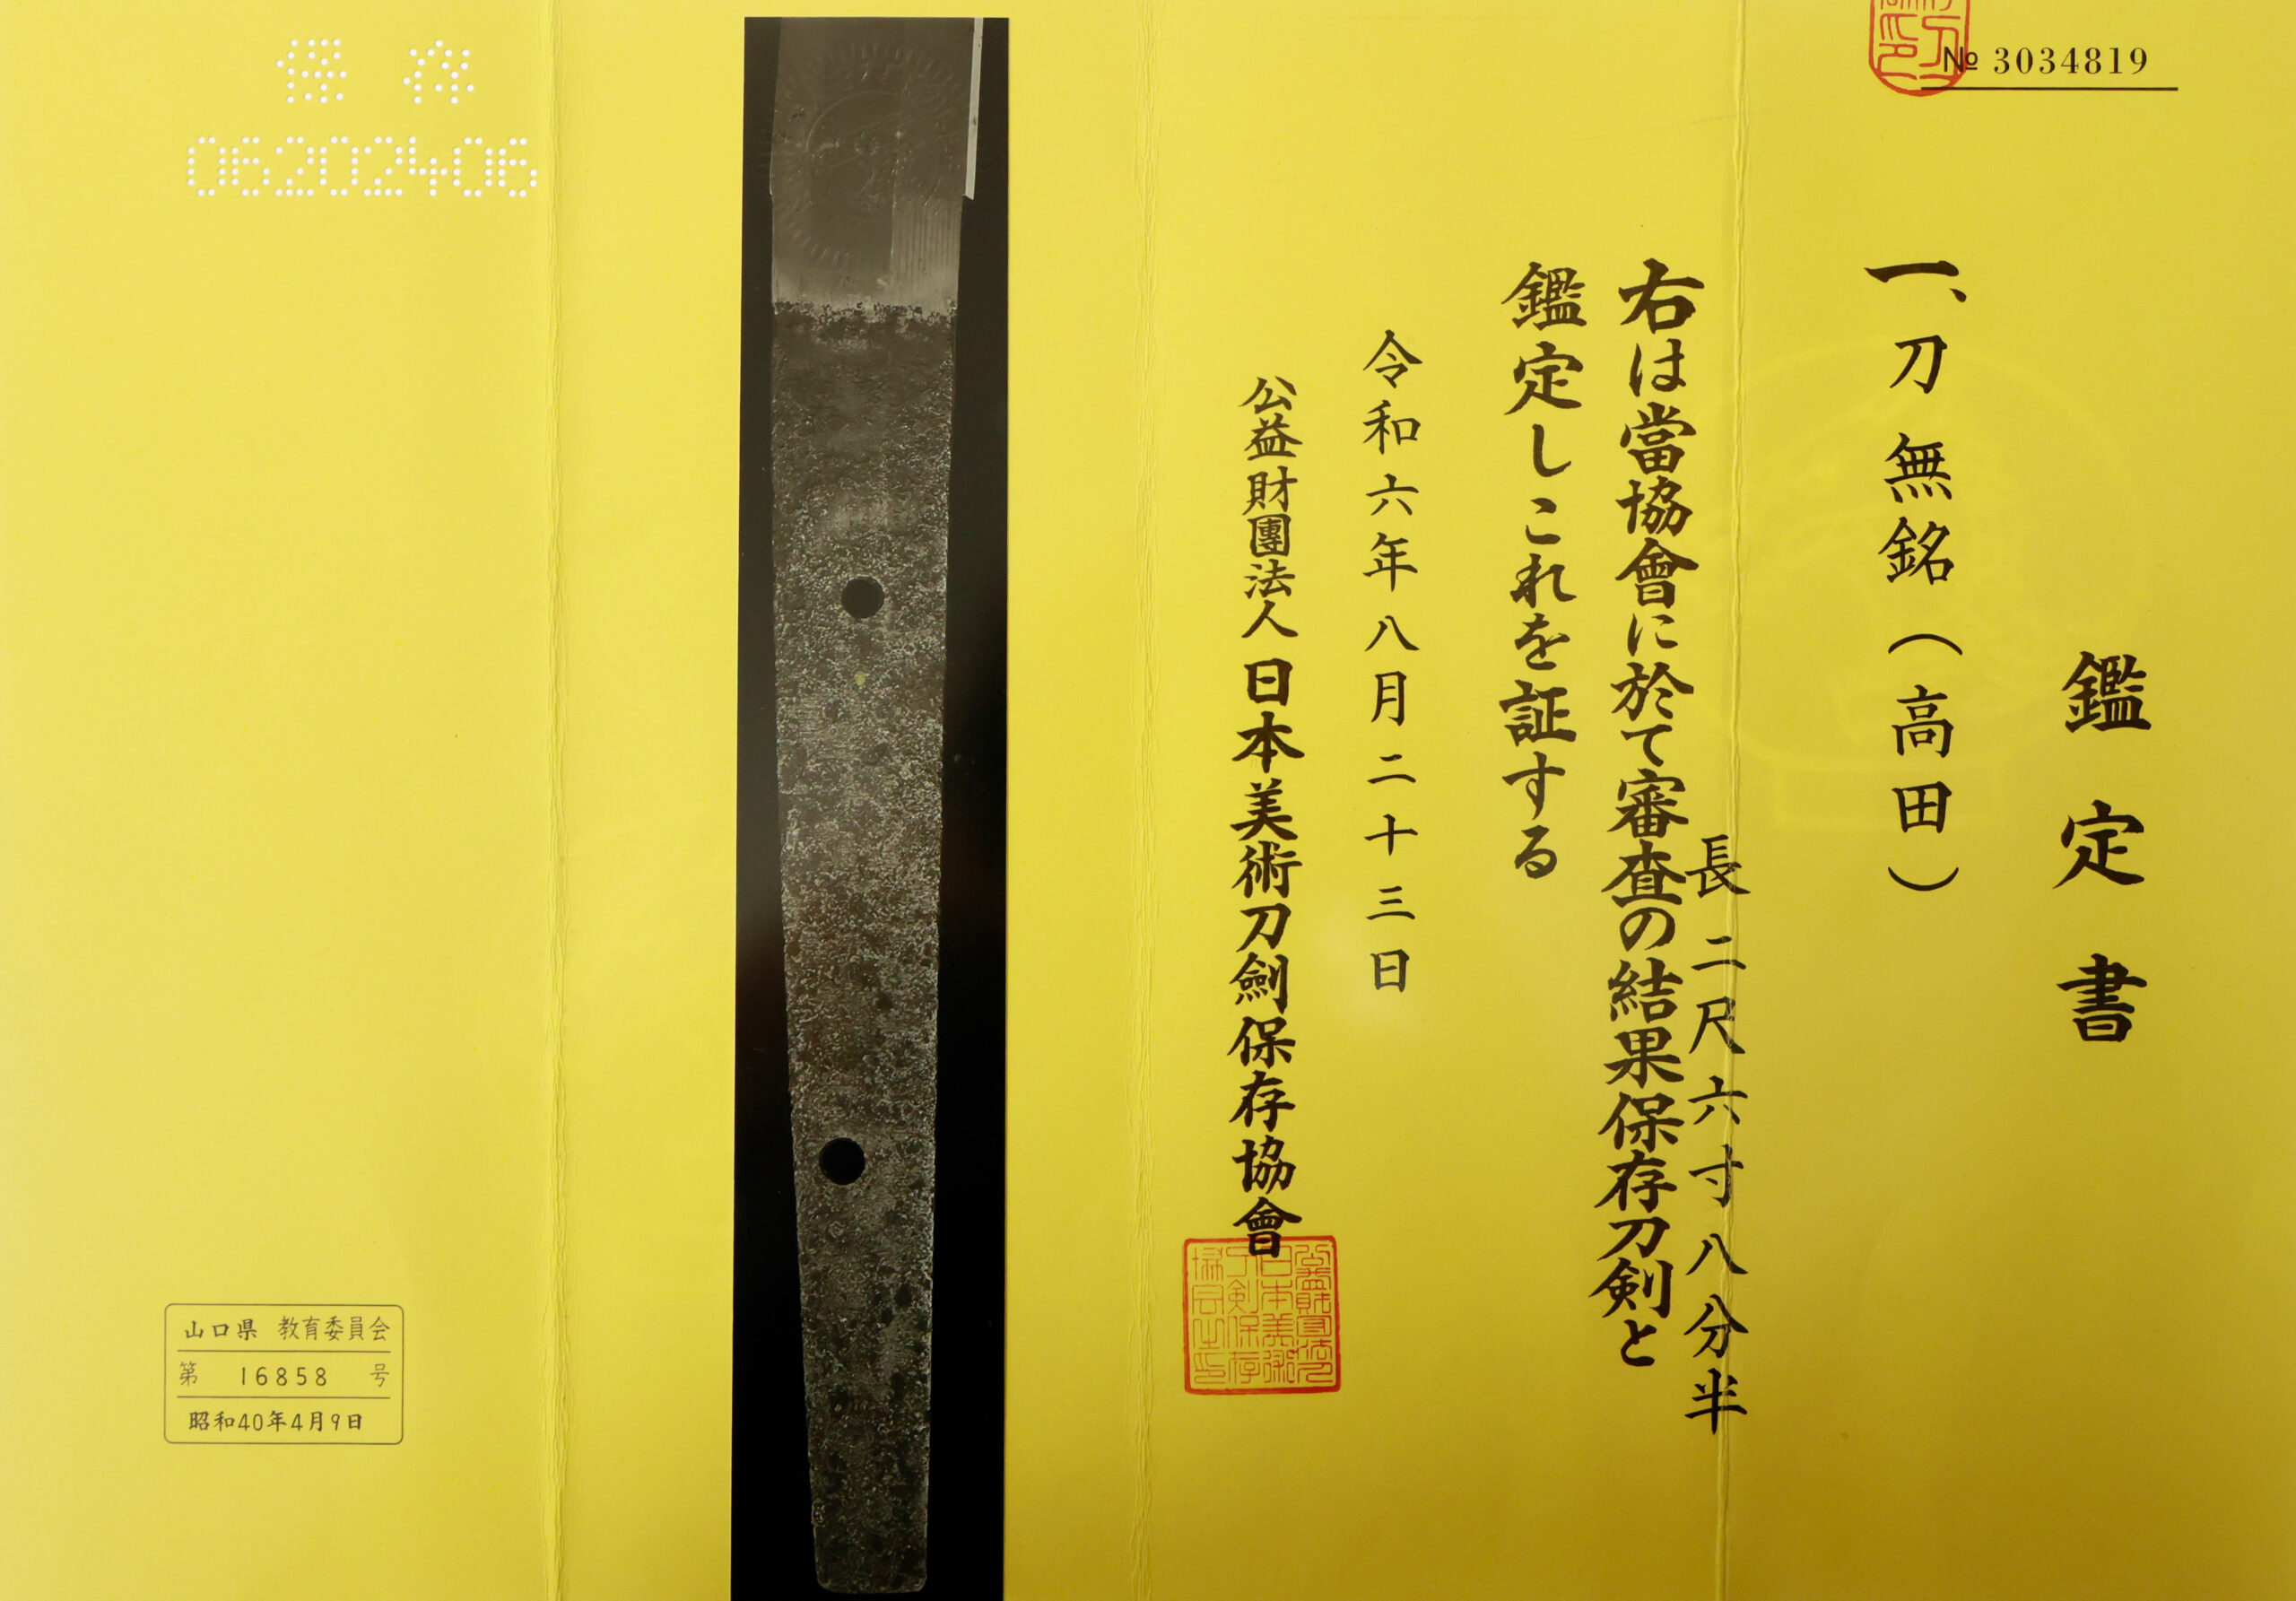 № 3034819
鑑定書
一、刀 無銘(高田)
長 二尺六寸八分半
右は當協會に於て審査の結果保存刀剣と
鑑定しこれを証する
令和六年八月二十三日
公益財團法人 日本美術刀劍保存協會
保存
06202406
山口県 教育委員会
第 16858 号
昭和40年4月9日